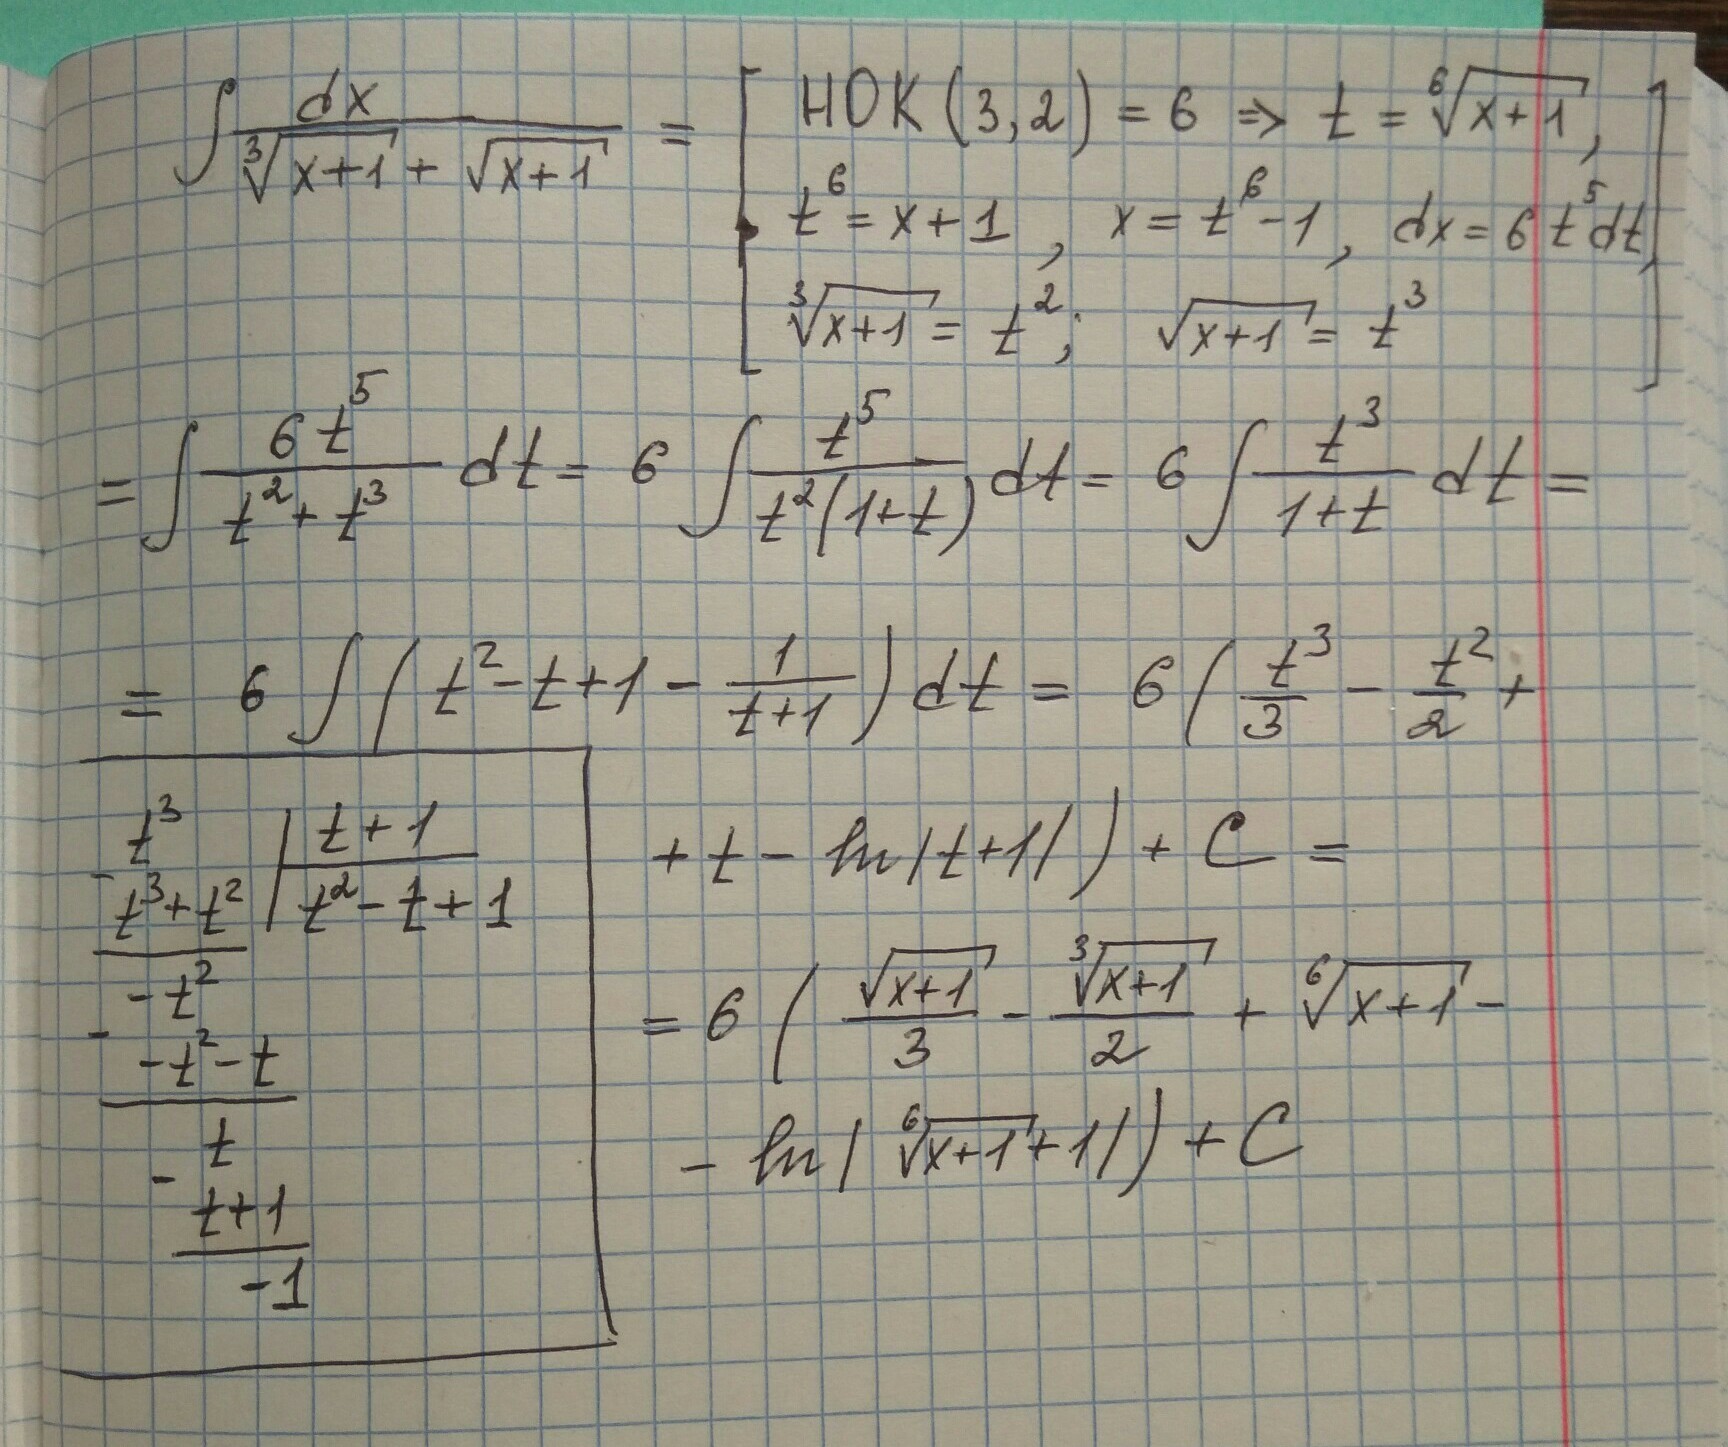 ∫ dx / (∛(x+1) + √(x+1)) = [ НОК (3,2) = 6 ⇒ t = ⁶√(x+1),
t⁶ = x+1, x = t⁶-1, dx = 6t⁵dt,
∛(x+1) = t²; √(x+1) = t³ ]
= ∫ 6t⁵ / (t²+t³) dt = 6 ∫ t⁵ / (t²(1+t)) dt = 6 ∫ t³ / (1+t) dt =
= 6 ∫ ( t²-t+1 - 1/(t+1) ) dt = 6 ( t³/3 - t²/2 +
+ t - ln|t+1| ) + C =
= 6 ( √(x+1)/3 - ∛(x+1)/2 + ⁶√(x+1) -
- ln| ⁶√(x+1) +1| ) + C
t³ | t+1
- t³+t² | t²-t+1
-t²
- -t²-t
t
- t+1
-1